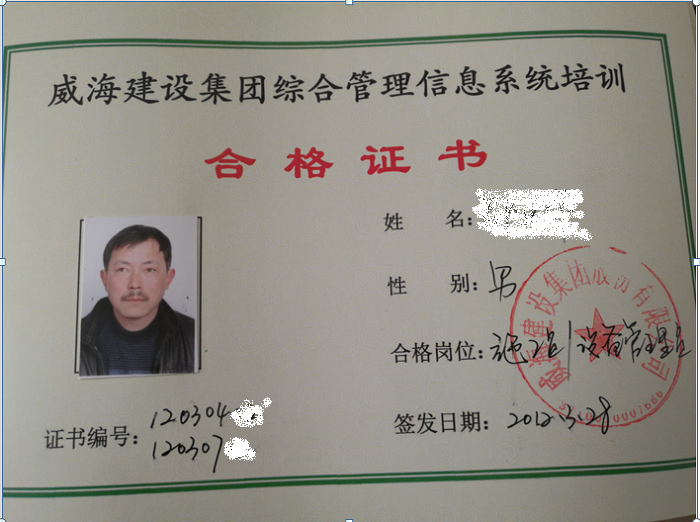 威海建设集团综合管理信息系统培训
合格证书
姓 名：
性 别：男
合格岗位：施工员/设备管理员
签发日期：2012.3.28
证书编号：120304
120307
威海建设集团股份有限公司